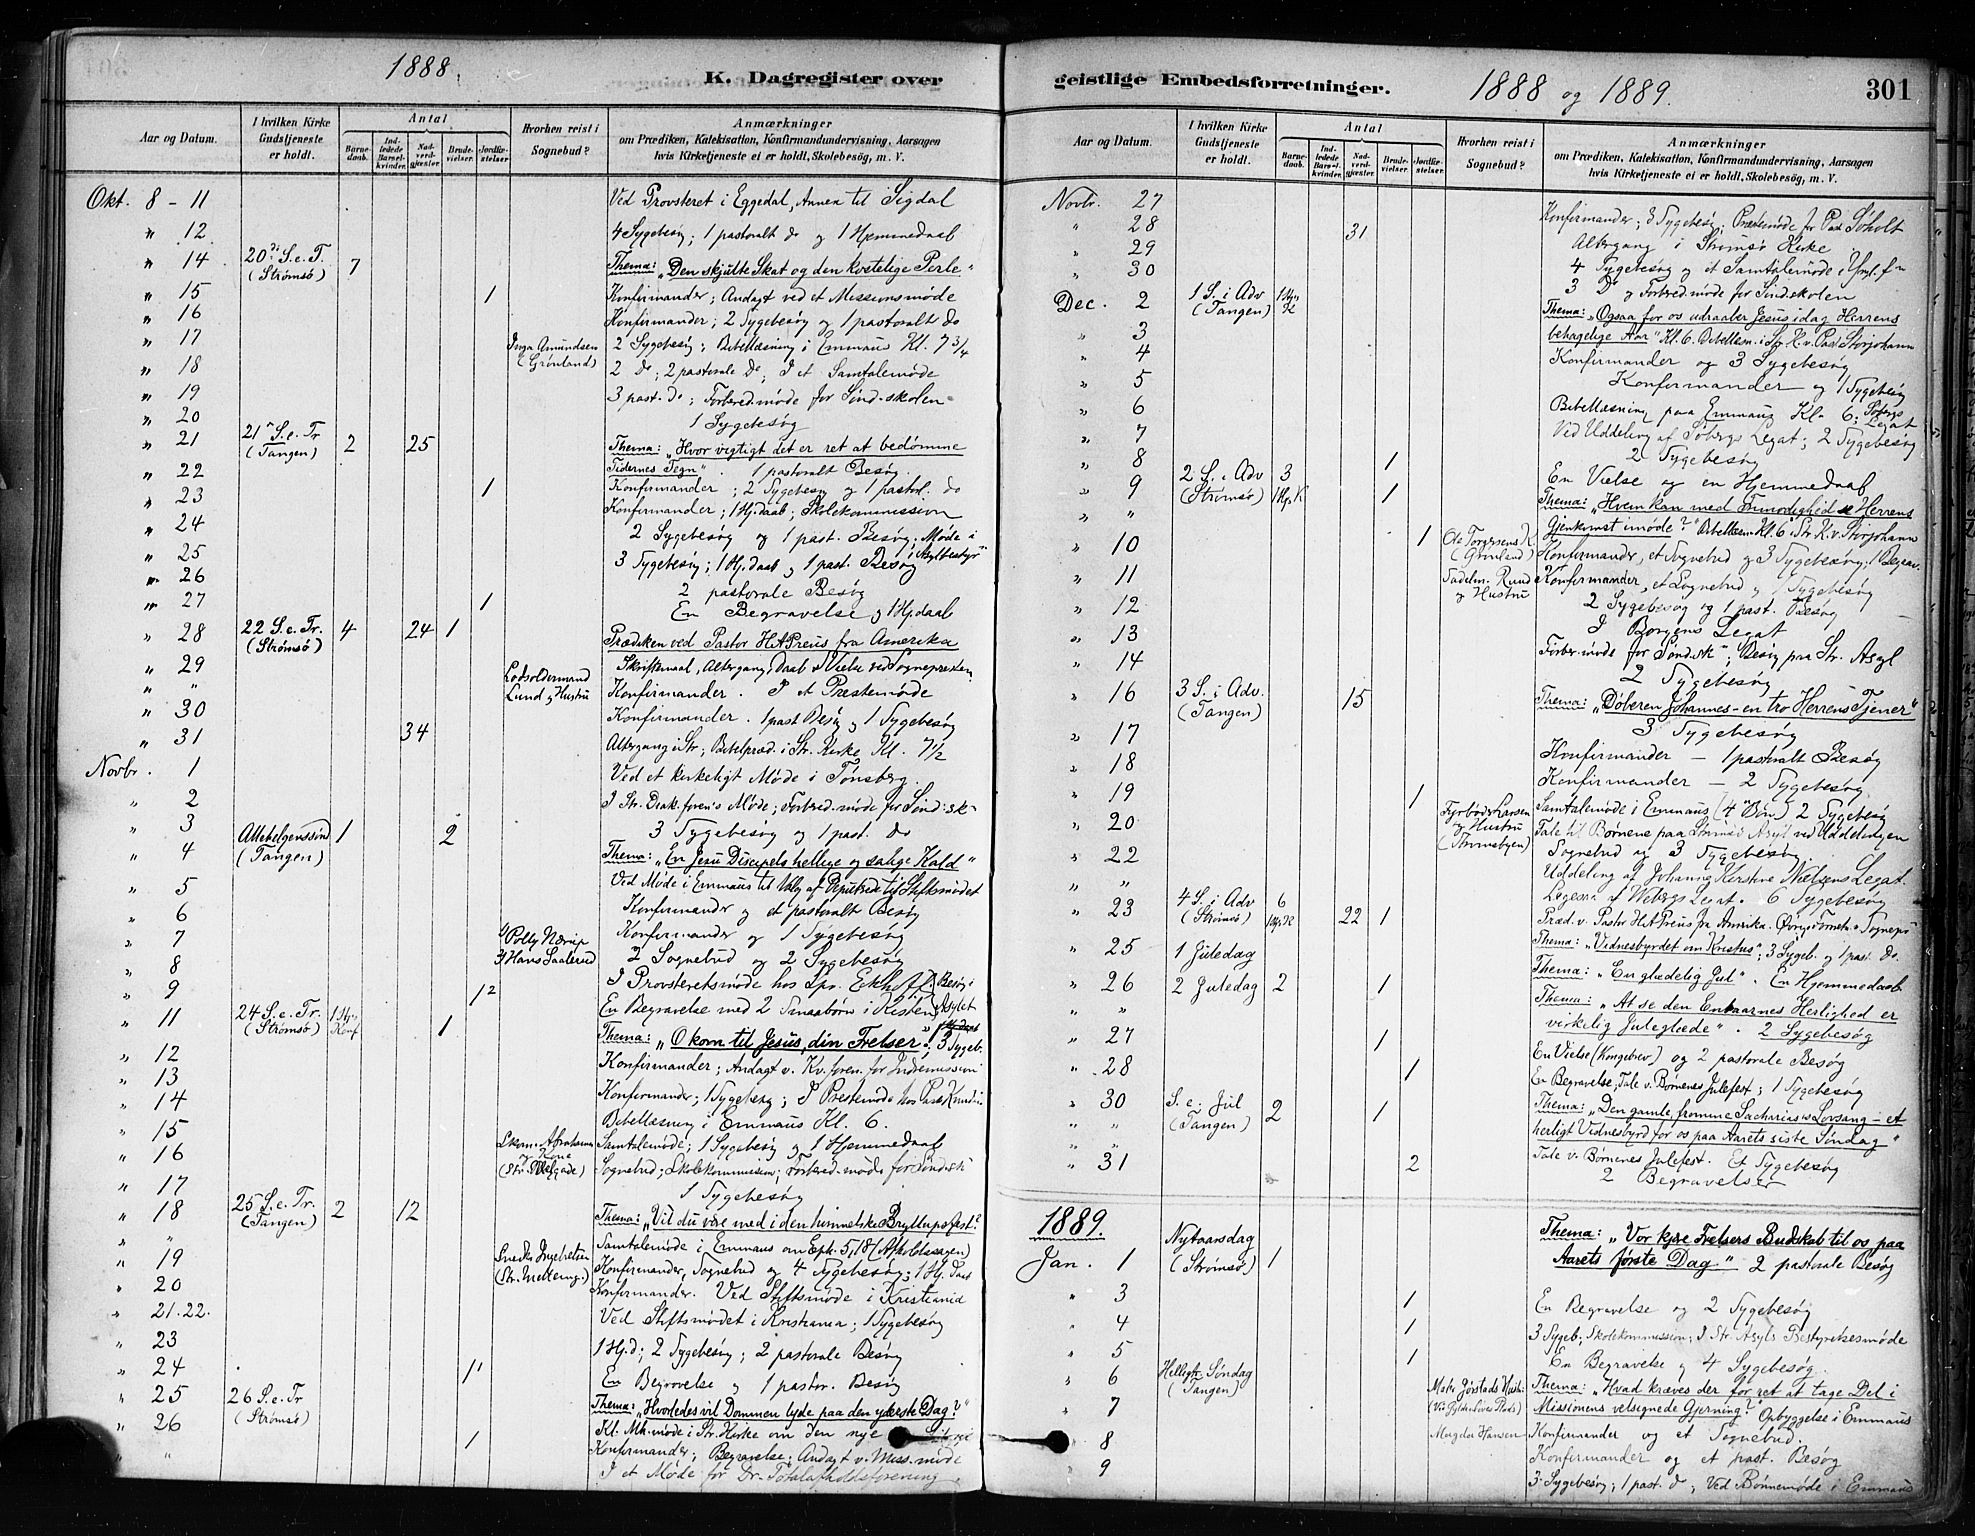 1888.
K. Dagregister over
Aar og Datum.
I hvilken Kirke Gudstjeneste er holdt.
Antal
Barnedaab.
Indledede Barselkvinder.
Nadverdgjester
Brudevielser.
Jordfæstelser
Hvorhen reist i Sognebud?
Anmærkninger
om Prædiken, Katekisation, Konfirmandundervisning, Aarsagen
hvis Kirketjeneste ei er holdt, Skolebesøg, m. V.
Okt. 8 - 11 Ved Provsteret i Eggedal, Annex til Sigdal
" 12 4 Sygebesøg; 1 pastoralt do og 1 Hjemmedaab
" 14 20de S. e. T. (Strømsø) 7 Thema: "Den skjulte Skat og den kostelige Perle"
" 15 1 Konfirmander; Andagt ved et Missionsmøde
" 16 Konfirmander; 2 Sygebesøg og 1 pastoralt do
" 17 Inga Amundsen (Grønland) 2 Sygebesøg; Bibellæsning i Emmaus Kl. 7 3/4
" 18 2 Do; 2 pastorale Do; I et Samtalemøde
" 19 3 past. do; Forbered.møde for Sønd.skolen
" 20 1 Sygebesøg
" 21 21 S. e. Tr (Tangen) 2 25 Thema: "Hvor vigtigt det er ret at bedømme
Tidernes Tegn". 1 pastoralt Besøg.
" 22 Konfirmander; 2 Sygebesøg og 1 pastoral. do
" 23 1 Konfirmander; 1 Hj.daab; Skolekommission
" 24 2 Sygebesøg og 1 past. Besøg; Møde i Asylbestyr
" 25 3 Sygebesøg; 1 Hj.daab og 1 past. Besøg
" 26 2 pastorale Besøg
" 27 1 En Begravelse og 1 Hj.daab
" 28 22 S. e. Tr. (Strømsø) 4 24 1 Prædiken ved Pastor H A Preus fra Amerika
Skriftemaal, Altergang, Daab og Vielse ved Sognepresten
" 29 Lodsoldermand Lund og Hustru Konfirmander. I et Prestemøde
" 30 Konfirmander. 1 past Besøg og 1 Sygebesøg
" 31 34 Altergang i Str; Bibelpræd. i Str. Kirke Kl. 7 1/2
Novbr. 1 Ved et kirkeligt Møde i Tønsberg.
" 2 I Str. Diak.foren's Møde; Forbered.møde for Sønd.sk-
" 3 3 Sygebesøg og 1 past. do
" 4 Allehelgenssønd (Tangen) 1 2 Thema: "En Jesu Discipels hellige og salige Kald"
" 5 Ved Møde i Emmaus til Valg af Deputerede til Stiftsmødet
" 6 Konfirmander og et pastoralt Besøg
" 7 Konfirmander og 1 Sygebesøg
" 8 Polly Nærup Hans Saalerud 2 Sognebud og 2 Sygebesøg
" 9 I Provsteretsmøde hos Spr. Eckhoff. Besøg i Asylet
12 En Begravelse med 2 Smaabørn i Kisten
" 11 24 S. e. Tr. (Strømsø) 1 Hj. Konf 1 Thema: "O kom til Jesus, din Frelser"; 3 Sygeb.
" 12 Konfirmander; Andagt v. Kv.foren. for Indremission
" 13 Konfirmander; 1 Sygebesøg; I Prestemøde hos Past. Knud
" 14 Bibellæsning i Emmaus Kl. 6.
" 15 Samtalemøde; 1 Sygebesøg og 1 Hjemmedaab
" 16 Sognebud; Skolekommission; Forbered.møde for Sønd.sk
" 17 1 Sygebesøg
" 18 25 S. e. Tr. (Tangen) 2 12 Thema: "Vil du være med i den himmelske Bryllupsfest?
Samtalemøde i Emmaus om Eph. 5,18 (Afholdssagen)
" 19 Konfirmander, Sognebud og 4 Sygebesøg; 1 Hj. Daab
" 20 Konfirmander. Ved Stiftsmøde i Kristiania
" 21. 22. Ved Stiftsmødet i Kristiania; 1 Sygebesøg
" 23 1 Hj.d; 2 Sygebesøg; 2 pastorale Besøg
" 24 1 En Begravelse og 1 pastor. Besøg
" 25 26 S. e. Tr (Strømsø) Thema: "Hvorledes vil Dommen lyde paa den yderste Dag?"
Kl. Mk.møde i Str. Kirke om den nye
" 26 1 Konfirmander; Begravelse; Andagt v. Miss.møde
" I et Møde for Dr. Totalafholdsforening.
geistlige Embedsforretninger.
1888 og 1889.
301
Aar og Datum.
I hvilken Kirke Gudstjeneste er holdt.
Antal
Barnedaab.
Indledede Barselkvinder.
Nadverdgjester
Brudevielser.
Jordfæstelser.
Hvorhen reist i Sognebud?
Anmærkninger
om Prædiken, Katekisation, Konfirmandundervisning, Aarsagen
hvis Kirketjeneste ei er holdt, Skolebesøg, m. V.
Novbr. 27 Konfirmander; 3 Sygebesøg; Prestemøde for Past Søholt
" 28 31 Altergang i Strømsø Kirke
" 29 4 Sygebesøg og et Samtalemøde i Yngl. f-
" 30 3 Do og Forbred.møde for Sønd.skolen
Dec. 2 1 S. i Adv (Tangen) 1 Hj. K Thema: "Ogsaa for os udraaber Jesus idag Herrens
behagelige Aar" Kl. 6. Bibellæsn. i Str. K. v. Past Storjohann
" 3 Konfirmander og 3 Sygebesøg
" 4 Konfirmander og 1 Sygebesøg
" 5 Bibellæsning paa Emmaus Kl. 6; Søbergs Legat
" 6 Ved Uddeling af Søbergs Legat; 2 Sygebesøg
" 7 2 Sygebesøg
" 8 1 En Vielse og en Hjemmedaab
" 9 2 S. i Adv (Strømsø) 3 1 Hj. K 1 Thema: "Hvem kan med Frimodighed se Herrens
" Gjenkomst imøde?" Bibellæsn Kl. 6 i Str. K. v. Storjohann
" 10 1 Ole Torgersens K. (Grønland) Konfirmander, et Sognebud og 3 Sygebesøg; 1 Begrav.
" 11 Konfirmander, et Sognebud og 1 Sygebesøg
" 12 2 Sygebesøg og 1 past. Besøg
" 13 I Borgens Legat
" 14 Forber.møde for Sønd.sk; Besøg paa Str. Asyl
2 Sygebesøg
" 16 3 S. i Adv. (Tangen) 15 Thema: "Døberen Johannes - en tro Herrens Tjener"
" 17 3 Sygebesøg
" 18 Konfirmander - 1 pastoralt Besøg
" 19 1 Konfirmander - 2 Sygebesøg.
" 20 Fyrbøder Larsen og Hustru Samtalemøde i Emmaus (4de Bøn) 2 Sygebesøg
Tale til Børnene paa Strømsø Asyl ved Uddelingen
" 22 Sognebud og 3 Sygebesøg.
" " Uddeling af Johanne Kirstine Nielsens Legat.
" 23 4 S. i Adv (Strømsø) 6 1 Hj. K 22 1 Præd. v. Pastor H A Preus fra Amerika.
" 25 1 Juledag Thema: "Vidnesbyrdet om Kristus"; 3 Sygeb. og 1 past. do.
" 26 2 Juledag 2 1 Thema: "En glædelig Jul". En Hjemmedaab
" " Thema: "At se den Enbaarnes Herlighed er
virkelig Juleglæde". 2 Sygebesøg
" 27 1 En Vielse (Kongebrev) og 2 pastorale Besøg
" 28 1 En Begravelse; Tale v. Børnenes Julefest; 1 Sygebesøg
" 30 S. e. Jul (Tangen) 2 1 Thema: "Den gamle, fromme Sacharias's Lovsang - et
" " herligt Vidnesbyrd for os paa Aarets siste Søndag"
" " Tale v. Børnenes Julefest. Et Sygebesøg
" 31 2 2 Begravelser
1889.
Jan. 1 Nytaarsdag (Strømsø) 1 Thema: "Vor kjære Frelsers Budskab til os paa
Aarets første Dag." 2 pastorale Besøg
" 3 1 En Begravelse og 2 Sygebesøg
" 4 1 3 Sygeb; Skolekommission; I Str. Asyls Bestyrelsesmøde
" 5 1 En Begravelse og 4 Sygebesøg.
" 6 Helligtr. Søndag (Tangen) Thema: "Hvad kræves der for ret at tage Del i
Missionens velsignede Gjerning?" Opbyggelse i Emmaus
" 7 Konfirmander og et Sognebud.
" 8 Konfirmander og et past. Besøg
" 9 3 Sygebesøg; 1 past. d; Ved Bønnemøde i Emmaus